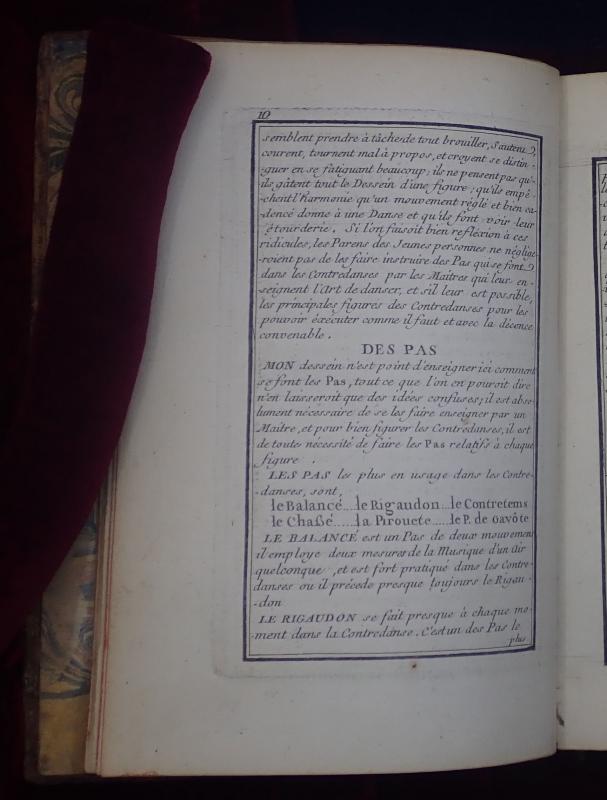 10
semblent prendre à tâche de tout brouiller, Sautent,
courent, tournent mal à propos, et croyent se distin-
-guer en se fatiguant beaucoup; ils ne pensent pas qu'-
ils gâtent tout le Dessein d'une figure; qu'ils empê-
-chent l'harmonie qu'un mouvement réglé et bien ca-
dencé donne à une Danse et qu'ils font voir leur
étourderie. Si l'on faisoit bien refléxion à ces
ridicules, les Parens des Jeunes personnes ne néglige-
-roient pas de les faire instruire des Pas qui se font
dans les Contredanses par les Maîtres qui leur en-
-seignent l'Art de danser, et s'il leur est possible,
les principales figures des Contredanses pour les
pouvoir éxécuter comme il faut et avec la décence
convenable.
DES PAS
MON dessein n'est point d'enseigner ici comment
se font les Pas, tout ce que l'on en pouroit dire
n'en laisseroit que des idées confuses; il est abso-
lument nécessaire de se les faire enseigner par un
Maître, et pour bien figurer les Contredanses, il est
de toute nécessité de faire les Pas relatifs à chaque
figure.
LES PAS les plus en usage dans les Contre-
-danses, sont,
le Balancé....le Rigaudon...le Contretems
le Chaßé.....la Pirouete.....le P. de Gavôte
LE BALANCÉ est un Pas de deux mouvemens
il employe deux mesures de la Musique d'un Air
quelconque, et est fort pratiqué dans les Contre-
danses ou il précede presque toujours le Rigau-
-don
LE RIGAUDON se fait presque à chaque mo-
-ment dans la Contredanse. C'est un des Pas le
plus